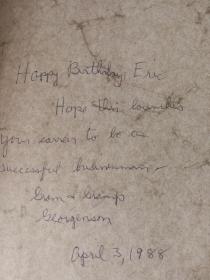 Happy Birthday, Eric
Hope this launches
your career to be a
successful businessman -
Gram & Gramp
Georgenson
April 3, 1988